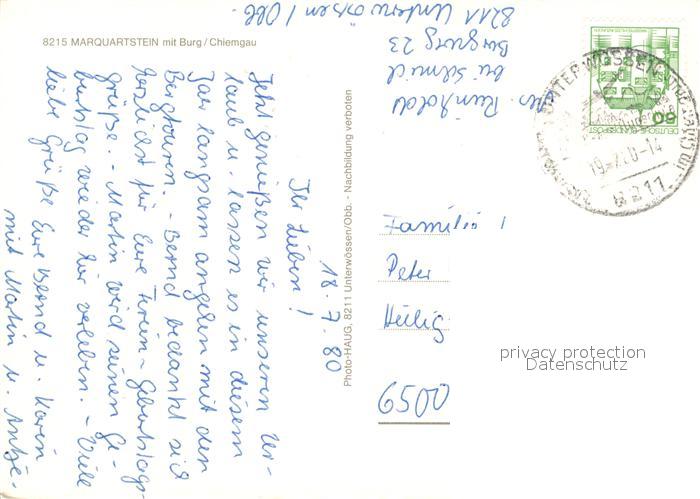 8215 MARQUARTSTEIN mit Burg / Chiemgau
18.7.80
Ihr Lieben!
Jetzt genießen wir unseren Ur-
laub u. lassen es in diesem
Jahr langsam angehen mit den
Bergtouren. - Bernd bedankt sich
herzlichst für Eure Ferien-Geburtstags-
grüße. - Martin wird seinen Ge-
burtstag wieder hier verleben. - Viele
liebe Grüße Eure Bernd u. Karin
mit Martin u. Antje.
Photo-HAUG, 8211 Unterwössen/Obb. - Nachbildung verboten
Reinhold
bei Schmid
Burgweg 23
8211 Unterwössen / Obb.
60
DEUTSCHE BUNDESPOST
UNTERWÖSSEN
8211
Familie
Peter
Heilig
6500
privacy protection
Datenschutz